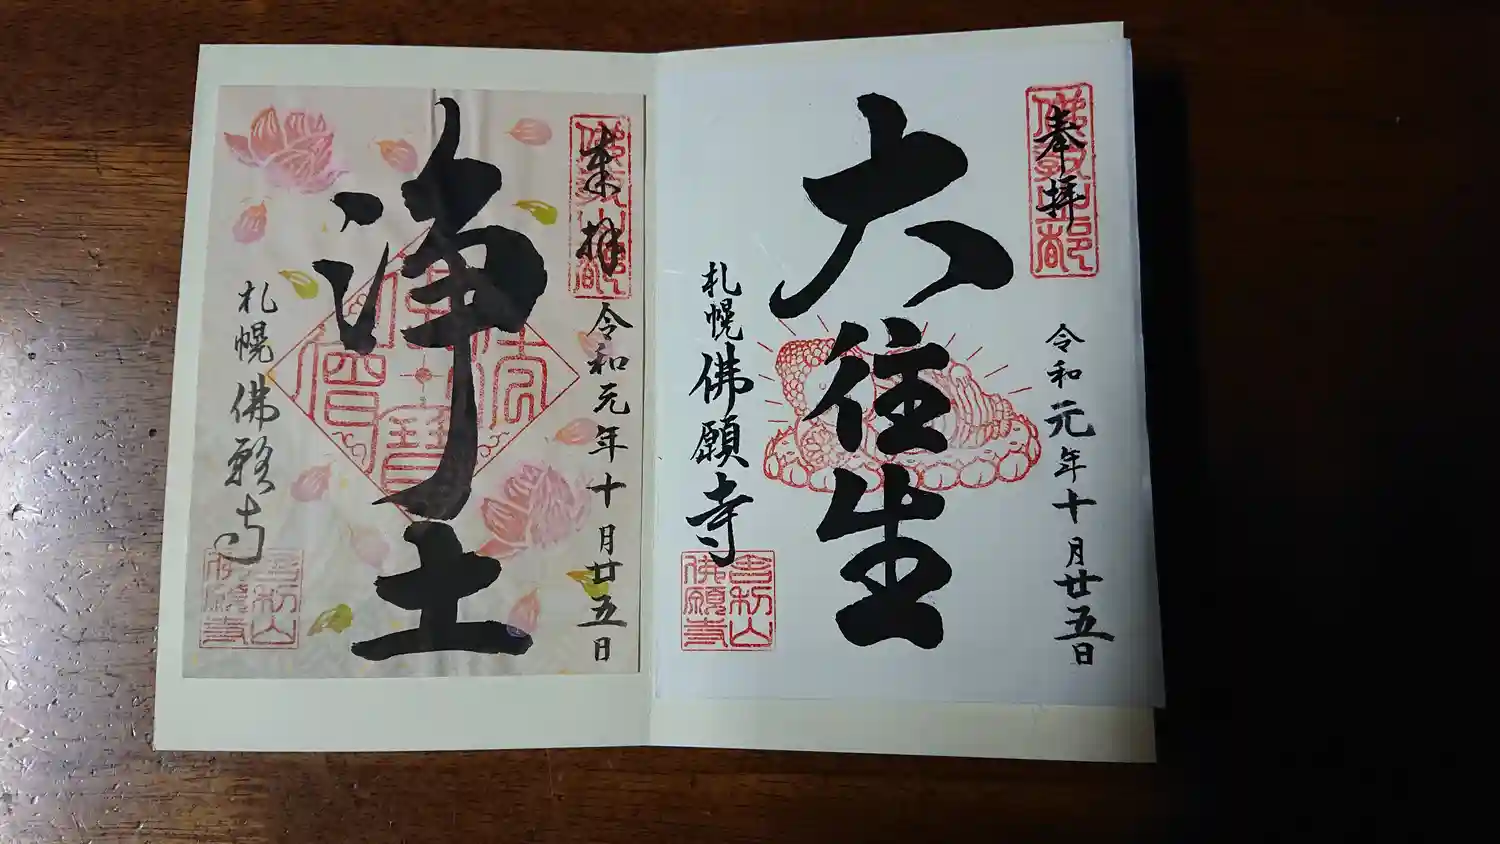 奉拝
令和元年十月廿五日
大往生
札幌佛願寺
来拝
令和元年十月廿五日
浄土
札幌佛願寺